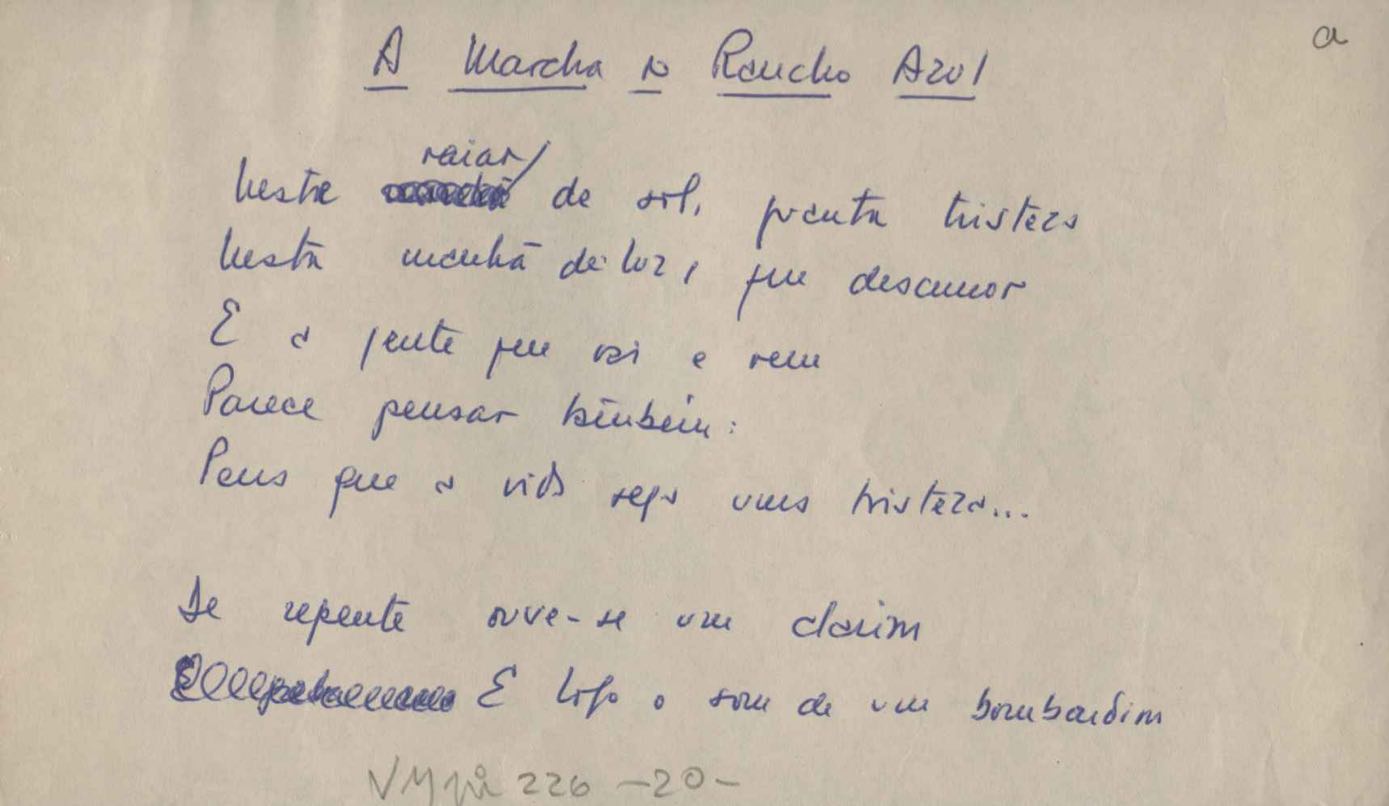 a
A Marcha do Rancho Azul
raiar
Neste de sol, quanta tristeza
Nesta manhã de luz, que desamor
E a gente que vai e vem
Parece pensar também:
Pena que a vida seja uma tristeza...
De repente ouve-se um clarim
E logo o som de um bombardim
VMpi 226 -20-